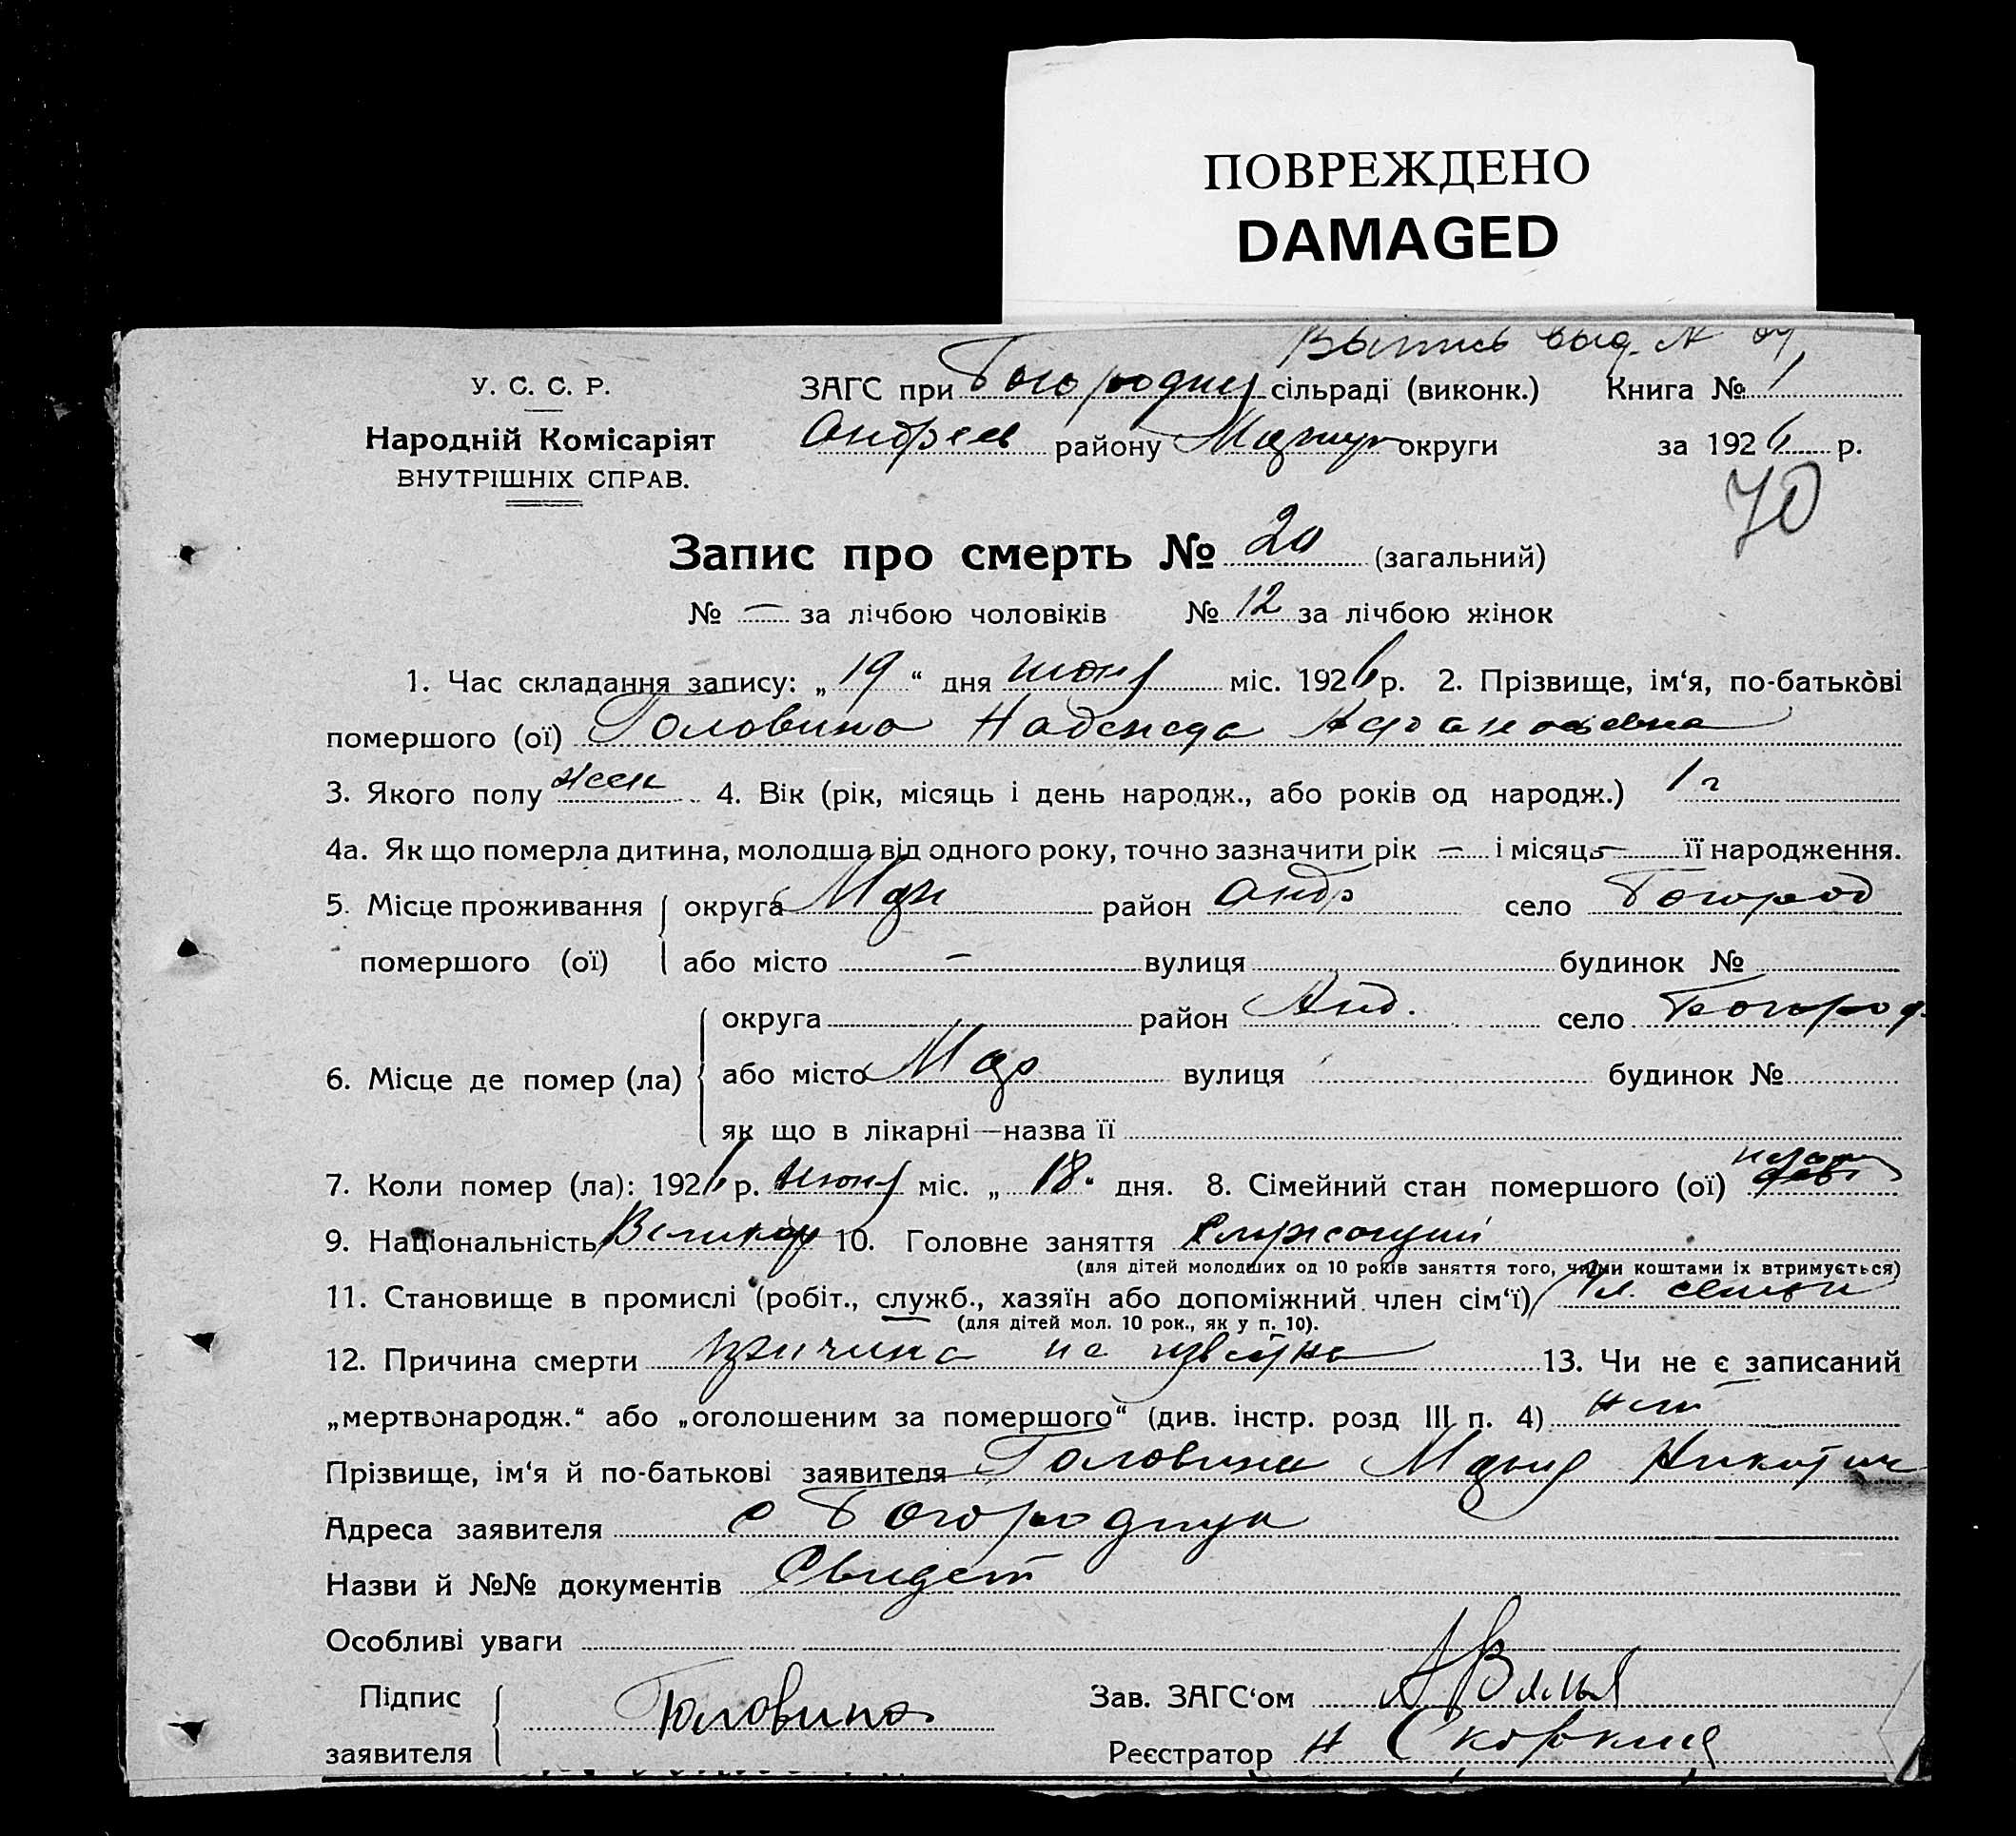 ПОВРЕЖДЕНО
DAMAGED
Выпись выд. №
У. С. С. Р.
Народній Комісаріят
ВНУТРІШНІХ СПРАВ.
ЗАГС при Богородиц сільраді (виконк.) Книга № 1
Андреев району Мариуп округи за 1926 р.
70
Запис про смерть № 20 (загальний)
№ — за лічбою чоловіків № 12 за лічбою жінок
1. Час складання запису: „ 19 “ дня июня міс. 1926 р. 2. Прізвище, ім‘я, по-батькові
помершого (ої) Головина Надежда
3. Якого полу жен 4. Вік (рік, місяць і день народж., або років од народж.) 1 г
4а. Як що померла дитина, молодша від одного року, точно зазначити рік — і місяць — її народження.
5. Місце проживання округа Мар район Андр село Богород
помершого (ої) або місто — вулиця будинок №
округа район Анд. село Богород
6. Місце де помер (ла) або місто Мар вулиця будинок №
як що в лікарні—назва її
7. Коли помер (ла): 1926 р. июня міс. „ 18 “ дня. 8. Сімейний стан помершого (ої)
9. Національність Великор 10. Головне заняття Служащий
(для дітей молодших од 10 років заняття того, чиїми коштами їх втримується)
11. Становище в промислі (робіт., служб., хазяїн або допоміжний член сім‘ї) Чл. семьи
(для дітей мол. 10 рок., як у п. 10).
12. Причина смерти причина не 13. Чи не є записаний
„мертвонародж.“ або „оголошеним за помершого“ (див. інстр. розд III п. 4) нет
Прізвище, ім‘я й по-батькові заявителя Головина Мария Никитич
Адреса заявителя с Богородицк
Назви й №№ документів Свидет
Особливі уваги
Підпис заявителя Головина
Зав. ЗАГС‘ом
Реєстратор Н